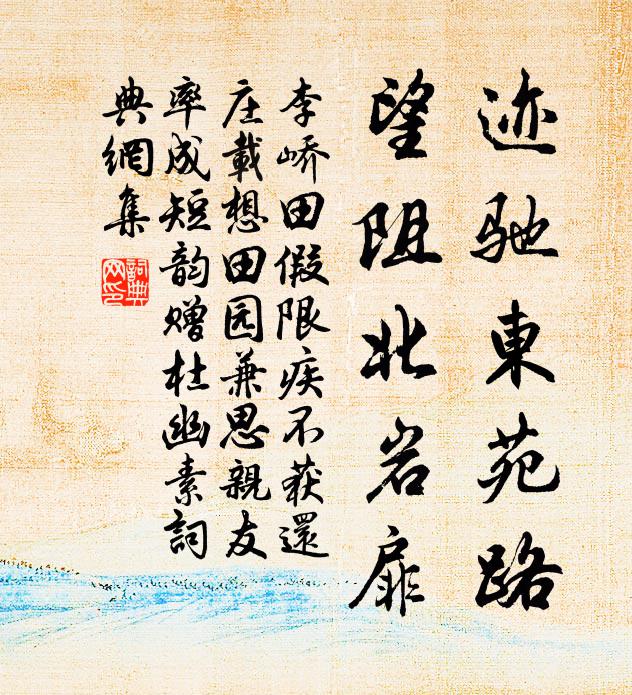 迹驰東苑路
望阻北岩扉
李峤田假限疾不获還
庄載想田园兼思親友
率成短韵赠杜幽素詞
典網集
詞典
网印